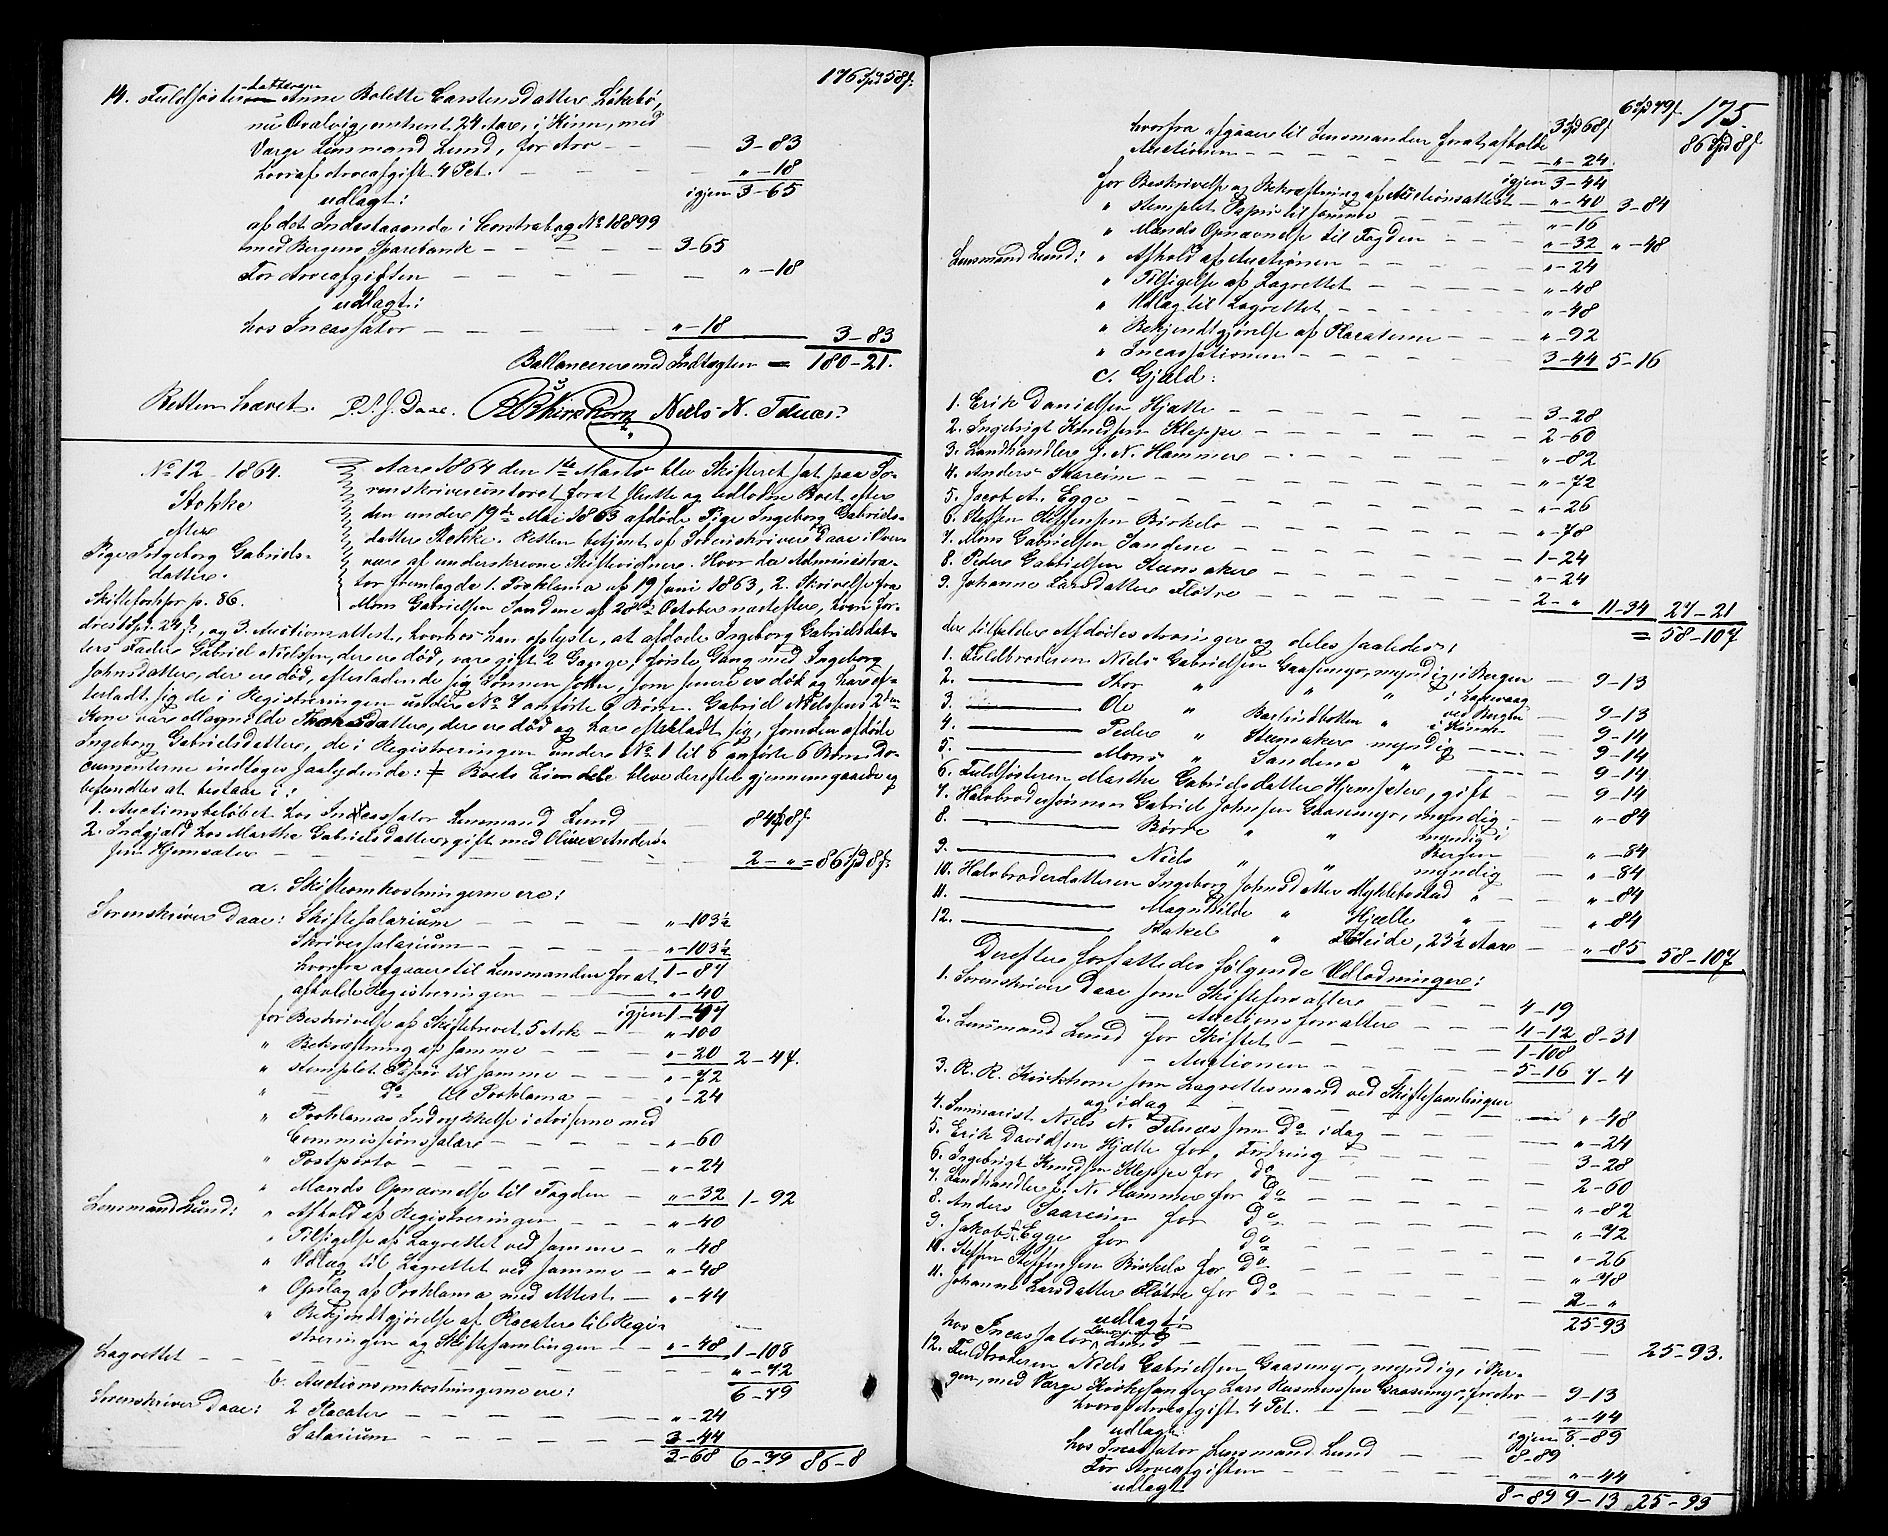 176 Spd 58 s.
14. Fuldsøsterdatteren Anne Bolette Carstensdatter Løkebø,
nu Qvalvig, omtrent 24 Aar, i Kinn, med
Værge Lensmand Lund, for Arv — — 3-83
hvoraf Arveafgift 4 Pct. — — — „-18
igjen 3-65
udlagt:
af det Indestaaende i Contrabog No 18899
med Bergens Sparebank — — — 3-65
For Arveafgiften — — — „-18
udlagt:
hos Incassator — — — „-18
3-83
Ballancerer med Indtægten = 180-21.
Retten hævet. P. S. J. Daae. Niels N. Felnæs.
No 12 - 1864.
Stokke
efter
Pige Ingeborg Gabriels-
datter.
Skiftefortspr p. 86.
Aar 1864 den 1ste Marts blev Skifteret sat paa So-
renskrivercontoret for at slutte og udlodne Boet efter
den under 19de Mai 1863 afdøde Pige Ingeborg Gabriels-
datter Stokke. Retten betjent af Sorenskriver Daae i Over-
være af underskrevne Skiftevidner. Hvor da Administra-
tor fremlagde 1. Proklama af 19 Juni 1863, 2. Skrivelse fra
Mons Gabrielsen Sandene af 28de October næstefter, hvori for-
dres 1 Spd. 24 s., og 3. Auctionsattest, hvorhos han oplyste, at afdøde Ingeborg Gabrielsdat-
ters Fader Gabriel Nielssen, der er død, var gift 2 Gange, første Gang med Ingeborg
Johnsdatter, der er død, efterladende sig Sønnen John, som senere er død og har ef-
terladt sig de i Registreringen under No 7 anførte 6 Børn. Gabriel Nielsens 2den
Kone var Magnilde Thomasdatter, der er død og har efterladt sig, foruden afdøde
Ingeborg Gabrielsdatter, de i Registreringen under No 1 til 6 anførte 6 Børn. Do-
cumenterne indtages saalydende: ≠ Boets Eiendele bleve derefter gjennemgaaede og
befundtes at bestaae i:
1. Auctionsbeløbet hos Incassator Lensmand Lund — — 84 Spd 8 s.
2. Indgjæld hos Marthe Gabrielsdatter, gift med Oliver Anders-
sen Hjemsæter — — — — 2-„ = 86 Spd 8 s.
a. Skifteomkostningerne ere:
Sorenskriver Daae: Skiftesalarium — — — „-103½
Skriversalarium — — — „-103½
hvorfra afgaaer til Lensmanden for at 1-87
afholde Registreringen — — „-40
igjen 1-47
for Beskrivelse af Skiftebrevet 5 Ark — „-100
„ Bekræftning af samme — — „-20 2-47.
„ stemplet Papir til samme — — „-72
„ — Do til Proklama — — „-24
„ Proklamas Indrykkelse i Aviserne med
Commissionssalær — — — „-60
„ Postporto — — — „-24
„ Mænds Opnævnelse til Fogden — „-32 1-92
Lensmand Lund: „ Afhold af Registreringen — — „-40
„ Tilsigelse af Lagrettet ved samme — „-48
„ Udlæg til Lagrettet ved samme — „-48
„ Opslag af Proklama med Attest — „-44
„ Bekjendtgjørelse af Placater til Regi-
streringen og Skiftesamlingen — — „-48 1-108
Lagrettet — — — — „-72
6-79
b. Auctionsomkostningerne ere:
Sorenskriver Daae: 2 Placater — — — „-24
Salarium — — — 3-44
3-68 6-79 86-8
175
3 Spd 68 s. 6 Spd 79 s. 86 Spd 8 s.
hvorfra afgaaer til Lensmanden for at afholde
Auctionen — — — — „-24
igjen 3-44
for Beskrivelse og Bekræftning af Auctionsattest — „-40 3-84
„ stemplet Papir til samme — — „-16
„ Mænds Opnævnelse til Fogden — — „-32 „-48
Lensmand Lund: „ Afhold af Auctionen — — „-24
„ Tilsigelse af Lagrettet — — „-48
„ Udlæg til Lagrettet — — „-48
„ Bekjendtgjørelse af Placaterne — — „-92
„ Incassationen — — — 3-44 5-16
c. Gjæld:
1. Erik Danielsen Hjelte — — — 3-28
2. Ingebrigt Knudsen Kleppe — — — 2-60
3. Landhandler J. N. Hammer — — — „-82
4. Anders Aareim — — — „-72
5. Jacob A. Egge — — — „-26
6. Steffen Steffensen Birkelo — — — „-78
7. Mons Gabrielsen Sandene — — — 1-24
8. Peder Gabrielsen Stemsaker — — — „-24
9. Johanne Larsdatter Fløtre — — — 2-„ 11-34 27-21
= 58-107
der tilfalder Afdødes Arvinger og deles saaledes:
1. Fuldbroderen Niels Gabrielsen Gaasemyr, myndig, i Bergen — 9-13
2. —— Thor „ „ „ i Laxevaag ved Bergen — 9-13
3. —— Ole „ Barlindbotten „ i Kinn — 9-14
4. —— Peder „ Stemsaker myndig — 9-14
5. —— Mons „ Sandene „ — 9-14
6. Fuldsøsteren Marthe Gabrielsdatter Hjemsæter, gift — 9-14
7. Halvbrodersønnen Gabriel Johnsen Gaasemyr, myndig — „-84
8. —— Børre „ „ myndig i Bergen — „-84
9. —— Niels „ „ myndig — „-84
10. Halvbroderdatteren Ingeborg Johnsdatter Myklebostad „ — „-84
11. —— Magnhilde „ Hjelle „ — „-84
12. —— Rakel „ Heide, 23½ Aar — „-85 58-107
Derefter forfattedes følgende Udlodninger:
1. Sorenskriver Daae som Skifteforvalter — — 4-19
— Auctionsforvalter — — 4-12 8-31
2. Lensmand Lund for Skiftet — — 1-108
— Auctionen — — 5-16 7-4
3. R. R. Kirkhorn som Lagrettesmand ved Skiftesamlinger
og idag — — — „-48
4. Seminarist Niels N. Felnæs som Do idag — — „-24
5. Erik Davidsen Hjelte for Fordring — — 3-28
6. Ingebrigt Knudsen Kleppe for Do — — 2-60
7. Landhandler J. N. Hammer for Do — — „-82
8. Anders Aareim for Do — — „-72
9. Jakob A. Egge for Do — — „-26
10. Steffen Steffensen Birkelo for Do — — „-78
11. Johanne Larsdatter Fløtre for Do — — 2-„
25-93
udlagt:
hos Incassator Lensmand Lund — — — 25-93.
12. Fuldbroderen Niels Gabrielsen Gaasemyr, myndig, i Ber-
gen, med Værge Kirkesanger Lars Rasmussen Gaasemyr, for Arv — 9-13
hvoraf Arveafgift 4 Pct. — — „-44
igjen 8-89
udlagt:
hos Incassator Lensmand Lund — — 8-89
For Arveafgiften — — „-44
udlagt
8-89 9-13 25-93